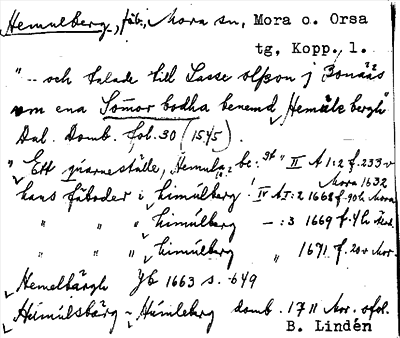 Hemulberg, fäb., Mora sn, Mora o. Orsa
tg, Kopp. l.
" -- och talade till Lasse olsson j Bonääs
om ena Sömor bodha benemd Hemäle bergh"
Dal. Domb. fol. 30 (1545).
"Ett quarneställe, Hemula be:gt" II A 1:2 f. 233 v
Mora 1632
hans fäboder i himulberg! IV A I:2 1668 f. 90 h Mora
" " " himúlberg —:3 1669 f. 4 h
" " " himúlberg " 1671 f. 20 v Mor.
Hemelbärgh Jb 1663 s. 649
Húmúlsbärg ~ Húmleberg domb. 1711 Mor. ofol.
B. Lindén